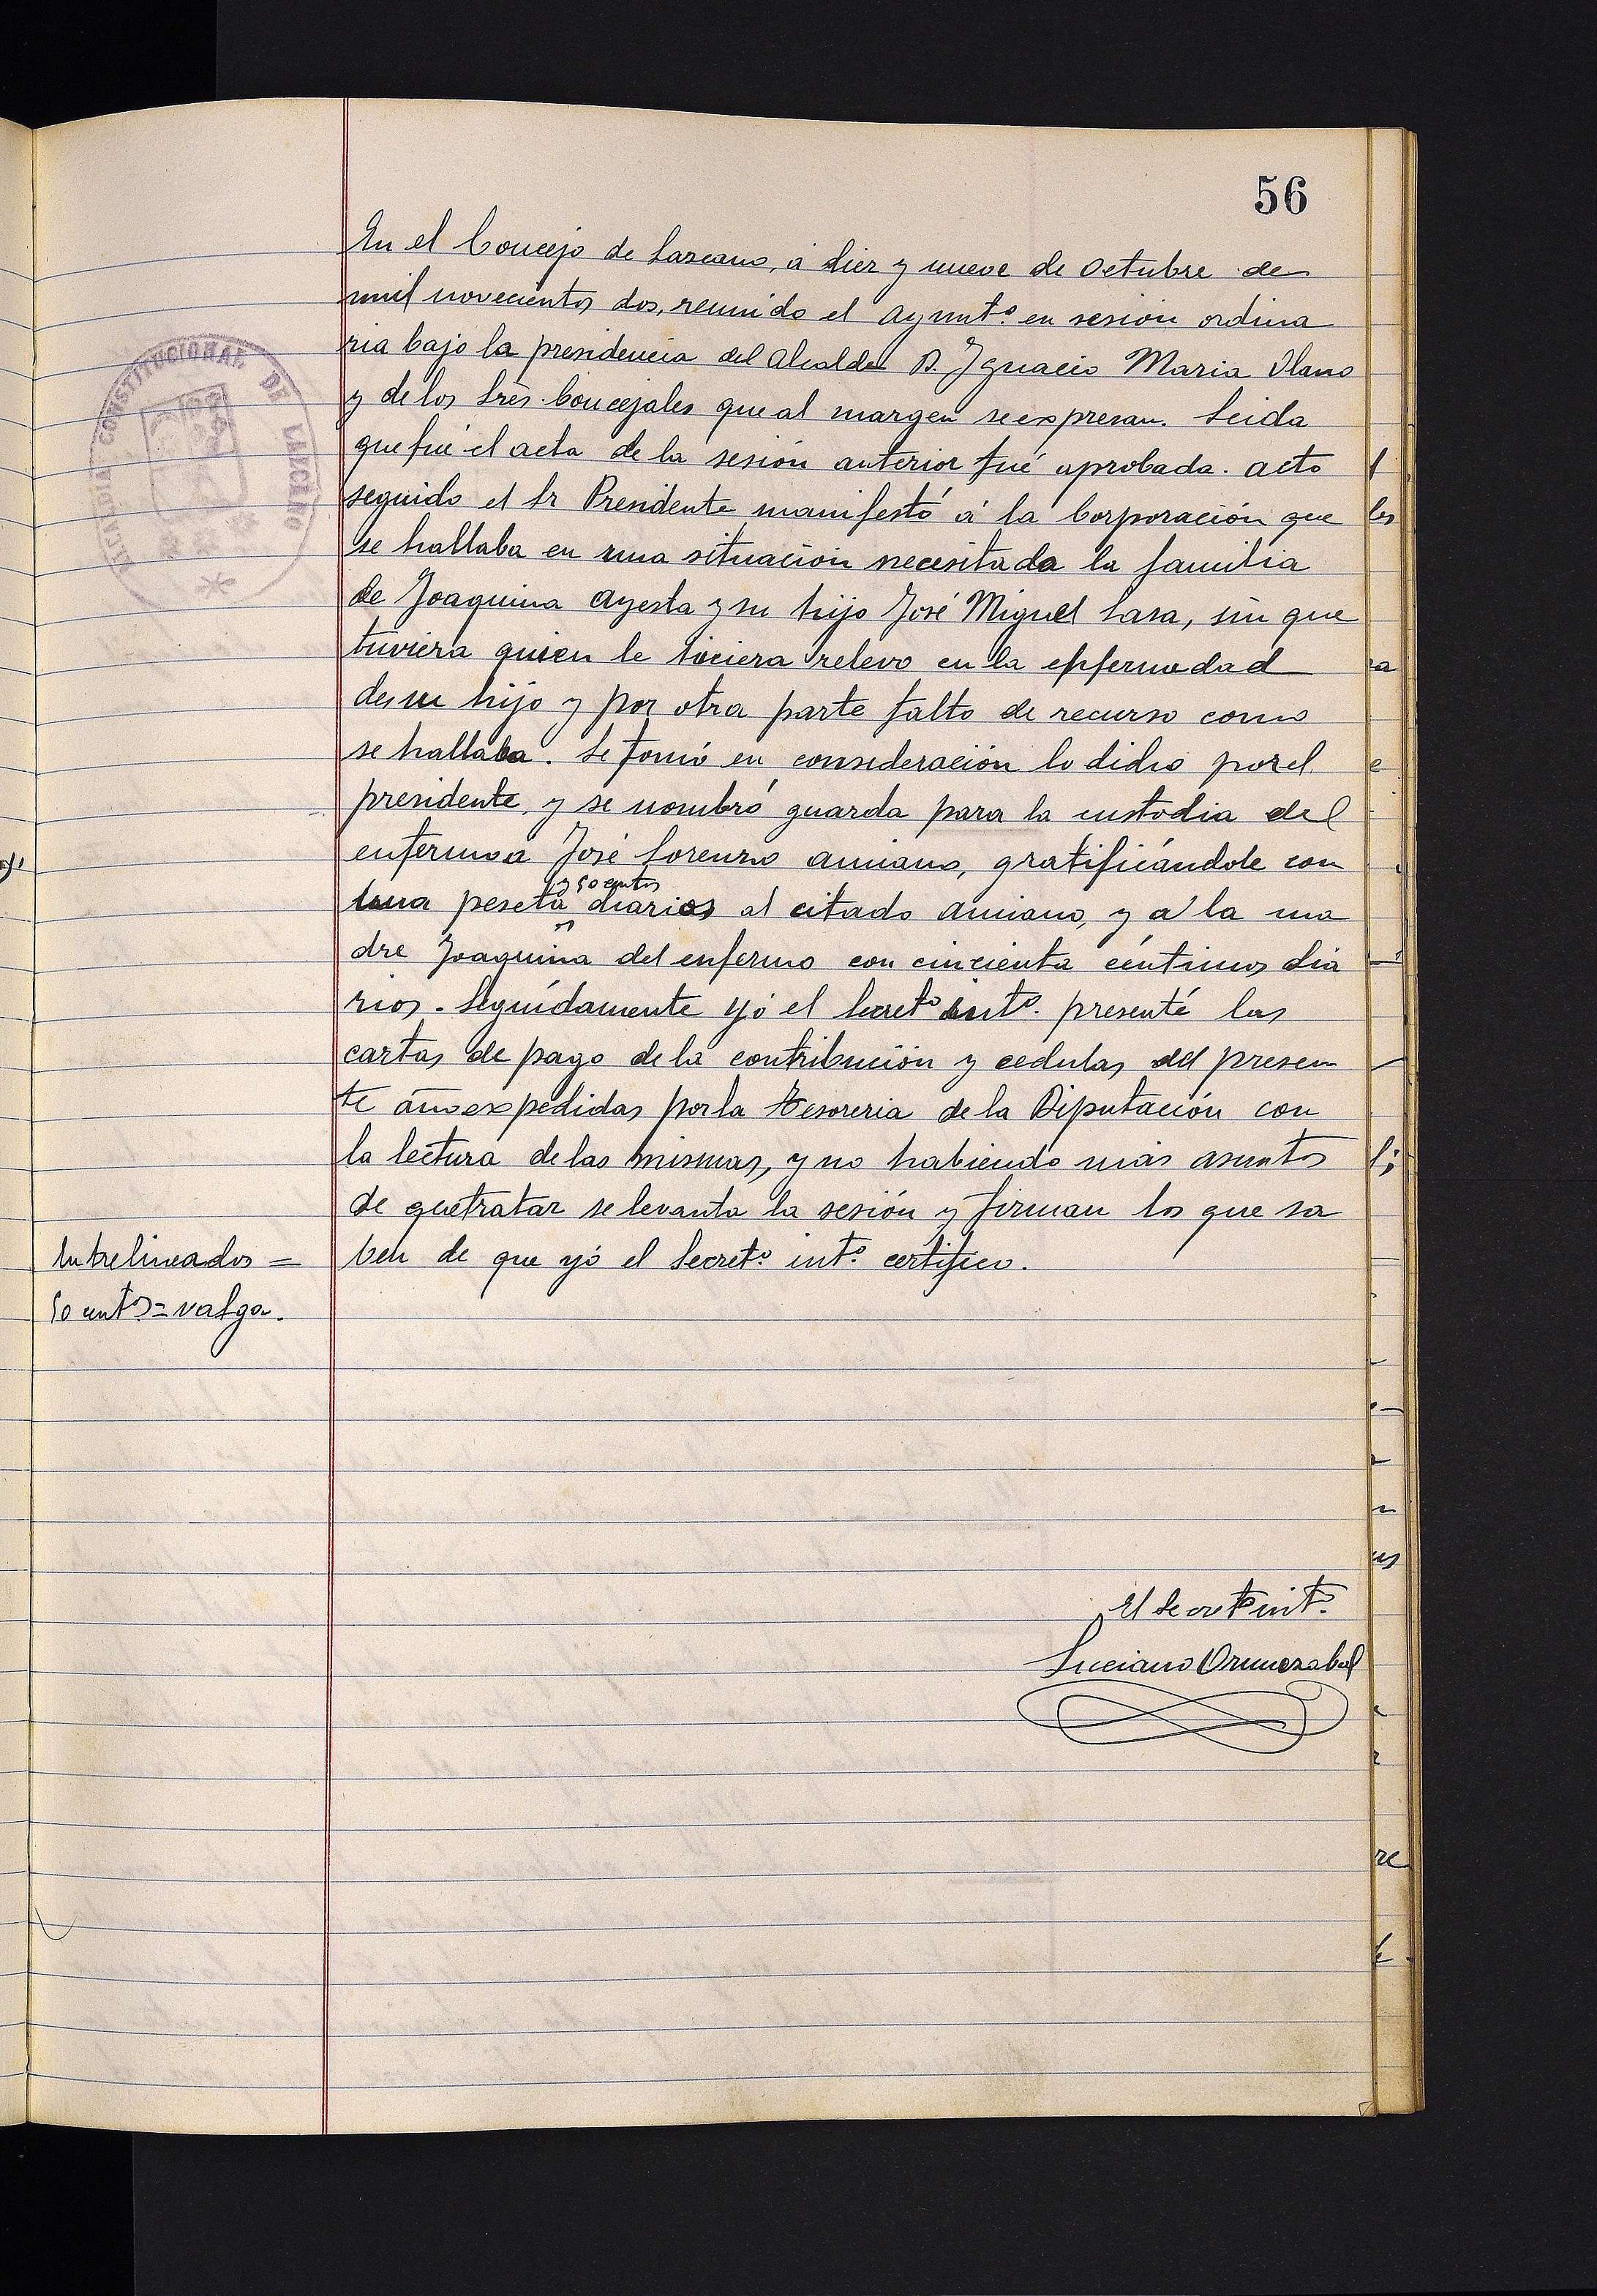 56
ALCALDIA CONSTITUCIONAL DE LAZCANO
En el Concejo de Lazcano, á diez y nueve de Octubre de
mil novecientos dos, reunido el Ayunt.º en sesión ordina
ria bajo la presidencia del Alcalde D. Ignacio Maria Olano
y de los tres Concejales que al margen se expresan. Leida
que fué el acta de la sesión anterior fué aprobada. Acto
seguido el Sr Presidente manifestó á la Corporación que
se hallaba en una situación necesitada la familia
de Joaquina Ayesta y su hijo José Miguel Lasa, sin que
tuviera quien le hiciera relevo en la enfermedad
de su hijo y por otra parte falto de recurso como
se hallaba. Se tomó en consideración lo dicho por el
presidente, y se nombró guarda para la custodia del
enfermo a José Lorenzo Amiano, gratificándole con
y 50 cents
una peseta diarios al citado Amiano, y á la ma
dre Joaquina del enfermo con cincienta céntimos dia
rios. Seguidamente yó el Secret.º int.º presenté las
cartas de pago de la contribución y cedulas del presen
te año expedidas por la tesoreria de la Diputación con
la lectura de las mismas, y no habiendo más asuntos
de que tratar se levanta la sesión y firman los que sa
ben de que yó el Secret.º int.º certifico.
Entrelineados =
50 cent.s = valga.
El Secret.º int.º
Luciano Ormazabal